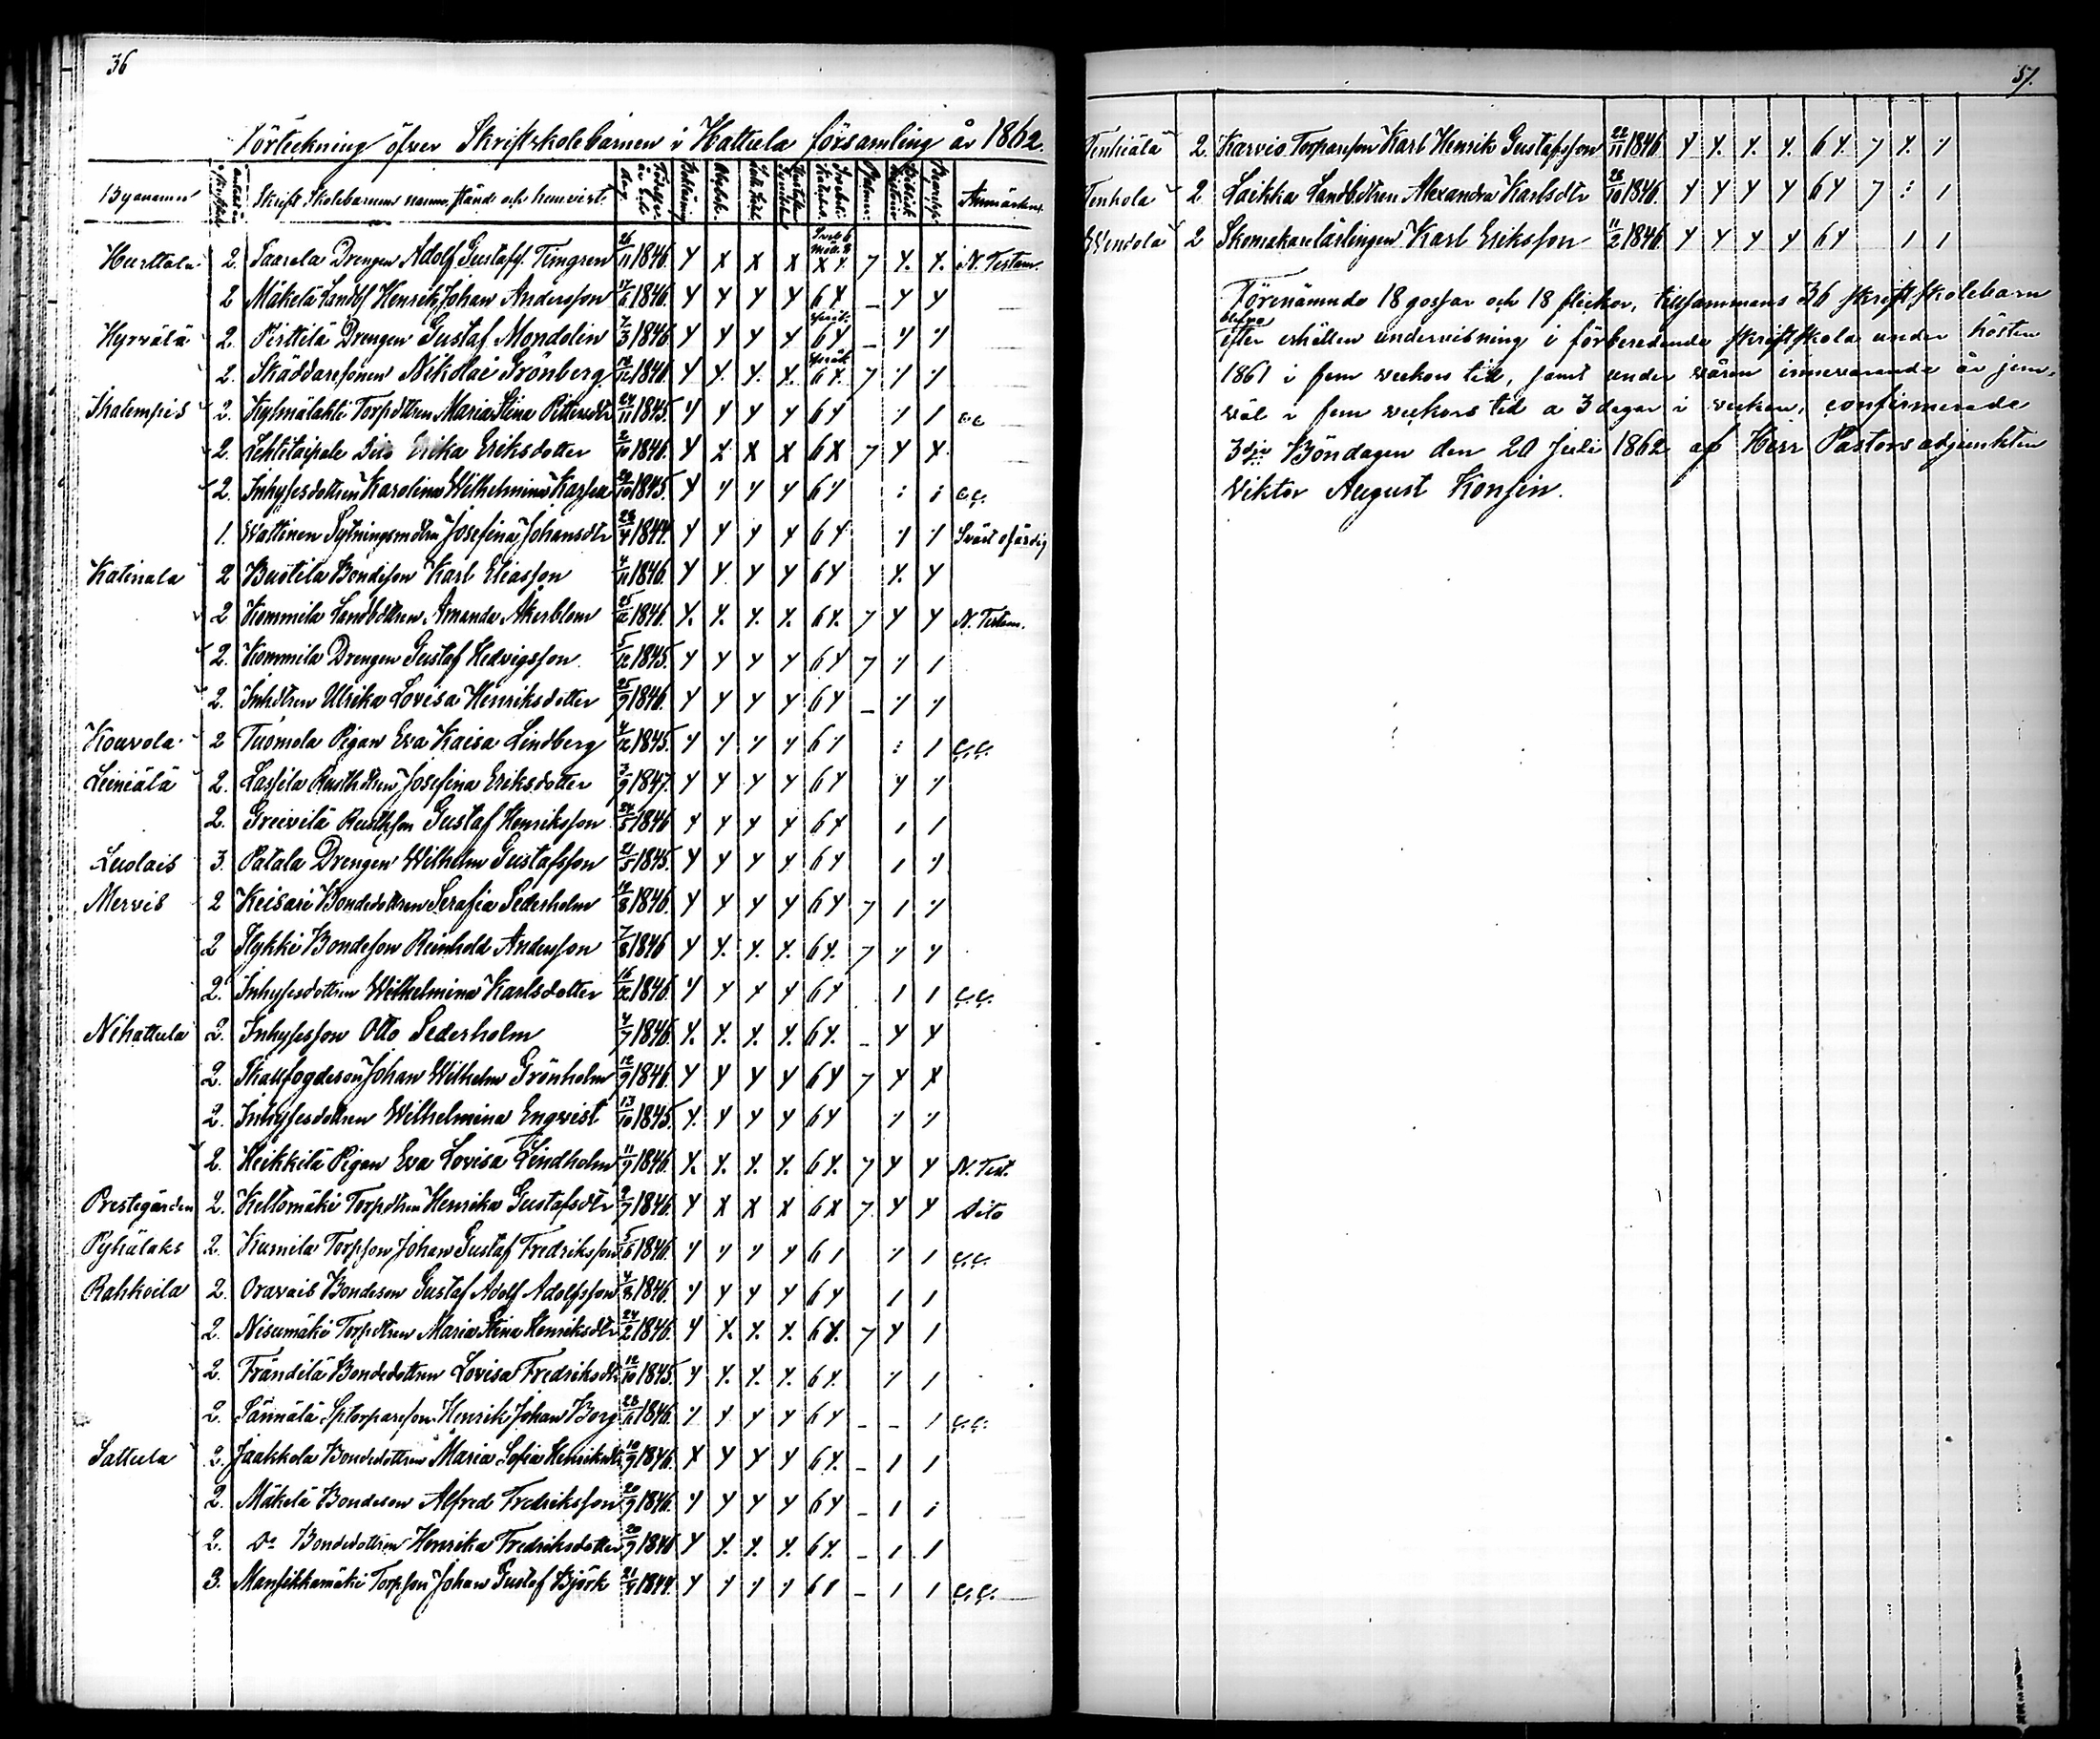 36
Förteckning öfver Skriftskolebarnen i Hattula församling år 1862.
Byanamn Skrift Skolebarnens namn, stånd och hemvist. Anmärkn.
Hurttala 2. Saarela Drengen Adolf Gustaf Timgren 26/11 1846. N. Testam.
2 Mäkelä Landbf Henrik Johan Andersson 17/6 1846.
Hyrvälä 2. Pirttilä Drengen Gustaf Mondelin 7/3 1846
2. Skäddaresonen Nikolai Grönberg 1846
Ihalempis 2. Kylmälahti Torpdttren Maria Stina Pettersdtr 24/11 1845. cc
2. Lehtitaipale Dito Erika Eriksdotter 2/10 1846.
2. Inhysesdottren Karolina Wilhelmina 29/10 1845. c.c.
1. Wattinen Sytningsmdttren Josefina Johansdtr 28/4 1844. Svårt ofärdig
Katinala 2 Bustila Bondeson Karl Eliasson 4/11 1846.
2 Kommila Landbdttren Amanda Åkerblom 25/12 1846. N. Testam.
2. Kommila Drengen Gustaf Hedvigsson 5/12 1845.
2. Inhdttren Ulrika Lovisa Henriksdotter 25/9 1846.
Kouvola 2 Tuomola Pigan Eva Kaisa Lindberg 4/12 1845. c.c.
Leiniälä 2. Lassila Rusthdttren Josefina Eriksdotter 3/9 1847.
2. Greivilä Rusthson Gustaf Henriksson 24/5 1846
Luolais 3. Patala Drengen Wilhelm Gustafsson 21/5 1845.
Mervis 2 Keisari Bondedottren Serafia Sederholm 19/8 1846.
2 Hykki Bondeson Reinhold Andersson 7/8 1846
2. Inhysesdottren Wilhelmina Karlsdotter 16/12 1846. c.c.
Nihattula 2. Inhysesson Otto Sederholm 4/7 1846.
2. Skallfogdeson Johan Wilhelm Grönholm 12/9 1846.
2. Inhysesdottren Wilhelmina Engvist 13/10 1845.
2. Heikkilä Pigan Eva Lovisa Lindholm 11/9 1846. N. Test.
Prestegården 2. Keltomäki Torpdttren Henrika Gustafsdtr 9/7 1846. Dito
Pyhälaks 2. Kumila Torpson Johan Gustaf Fredriksson 5/6 1846. c.c.
Rahkoila 2. Oravais Bondeson Gustaf Adolf Adolfsson 4/8 1846.
2. Nisumäki Torpdttren Maria Stina Henriksdtr 24/2 1846.
2. Frändilä Bondedottren Lovisa Fredriksdtr 12/10 1845.
2. Sännälä Sptorpareson Henrik Johan Borg 1846. c.c.
Sattula 2. Jaakkola Bondedottren Maria Sofia Henriksdtr 10/9 1846.
2. Mäkelä Bondeson Alfred Fredriksson 20/9 1846.
2. Do Bondedottren Henrika Fredriksdotter 20/9 1846
3. Mansikkamäki Torpson Johan Gustaf Björk 1844. c.c.
37.
Tenhiälä 2. Karvio Torpareson Karl Henrik Gustafsson 22/11 1846
Tenhola 2. Laikka Landbdttren Alexandra Karlsdtr 28/10 1846.
Wendola 2 Skomakarelärlingen Karl Eriksson 11/2 1846.
Förenämnde 18 gossar och 18 flickor, tillsammans 36 skriftskolebarn
blefvo
efter erhållen undervisning i förberedande skriftskola under hösten
1861 i fem veckors tid, samt under våren innevarande år jem-
väl i fem veckors tid a 3 dagar i veckan, confirmerade
3dje Böndagen den 20 Juli 1862 af Herr Pastorsadjunkten
Viktor August Konsin.